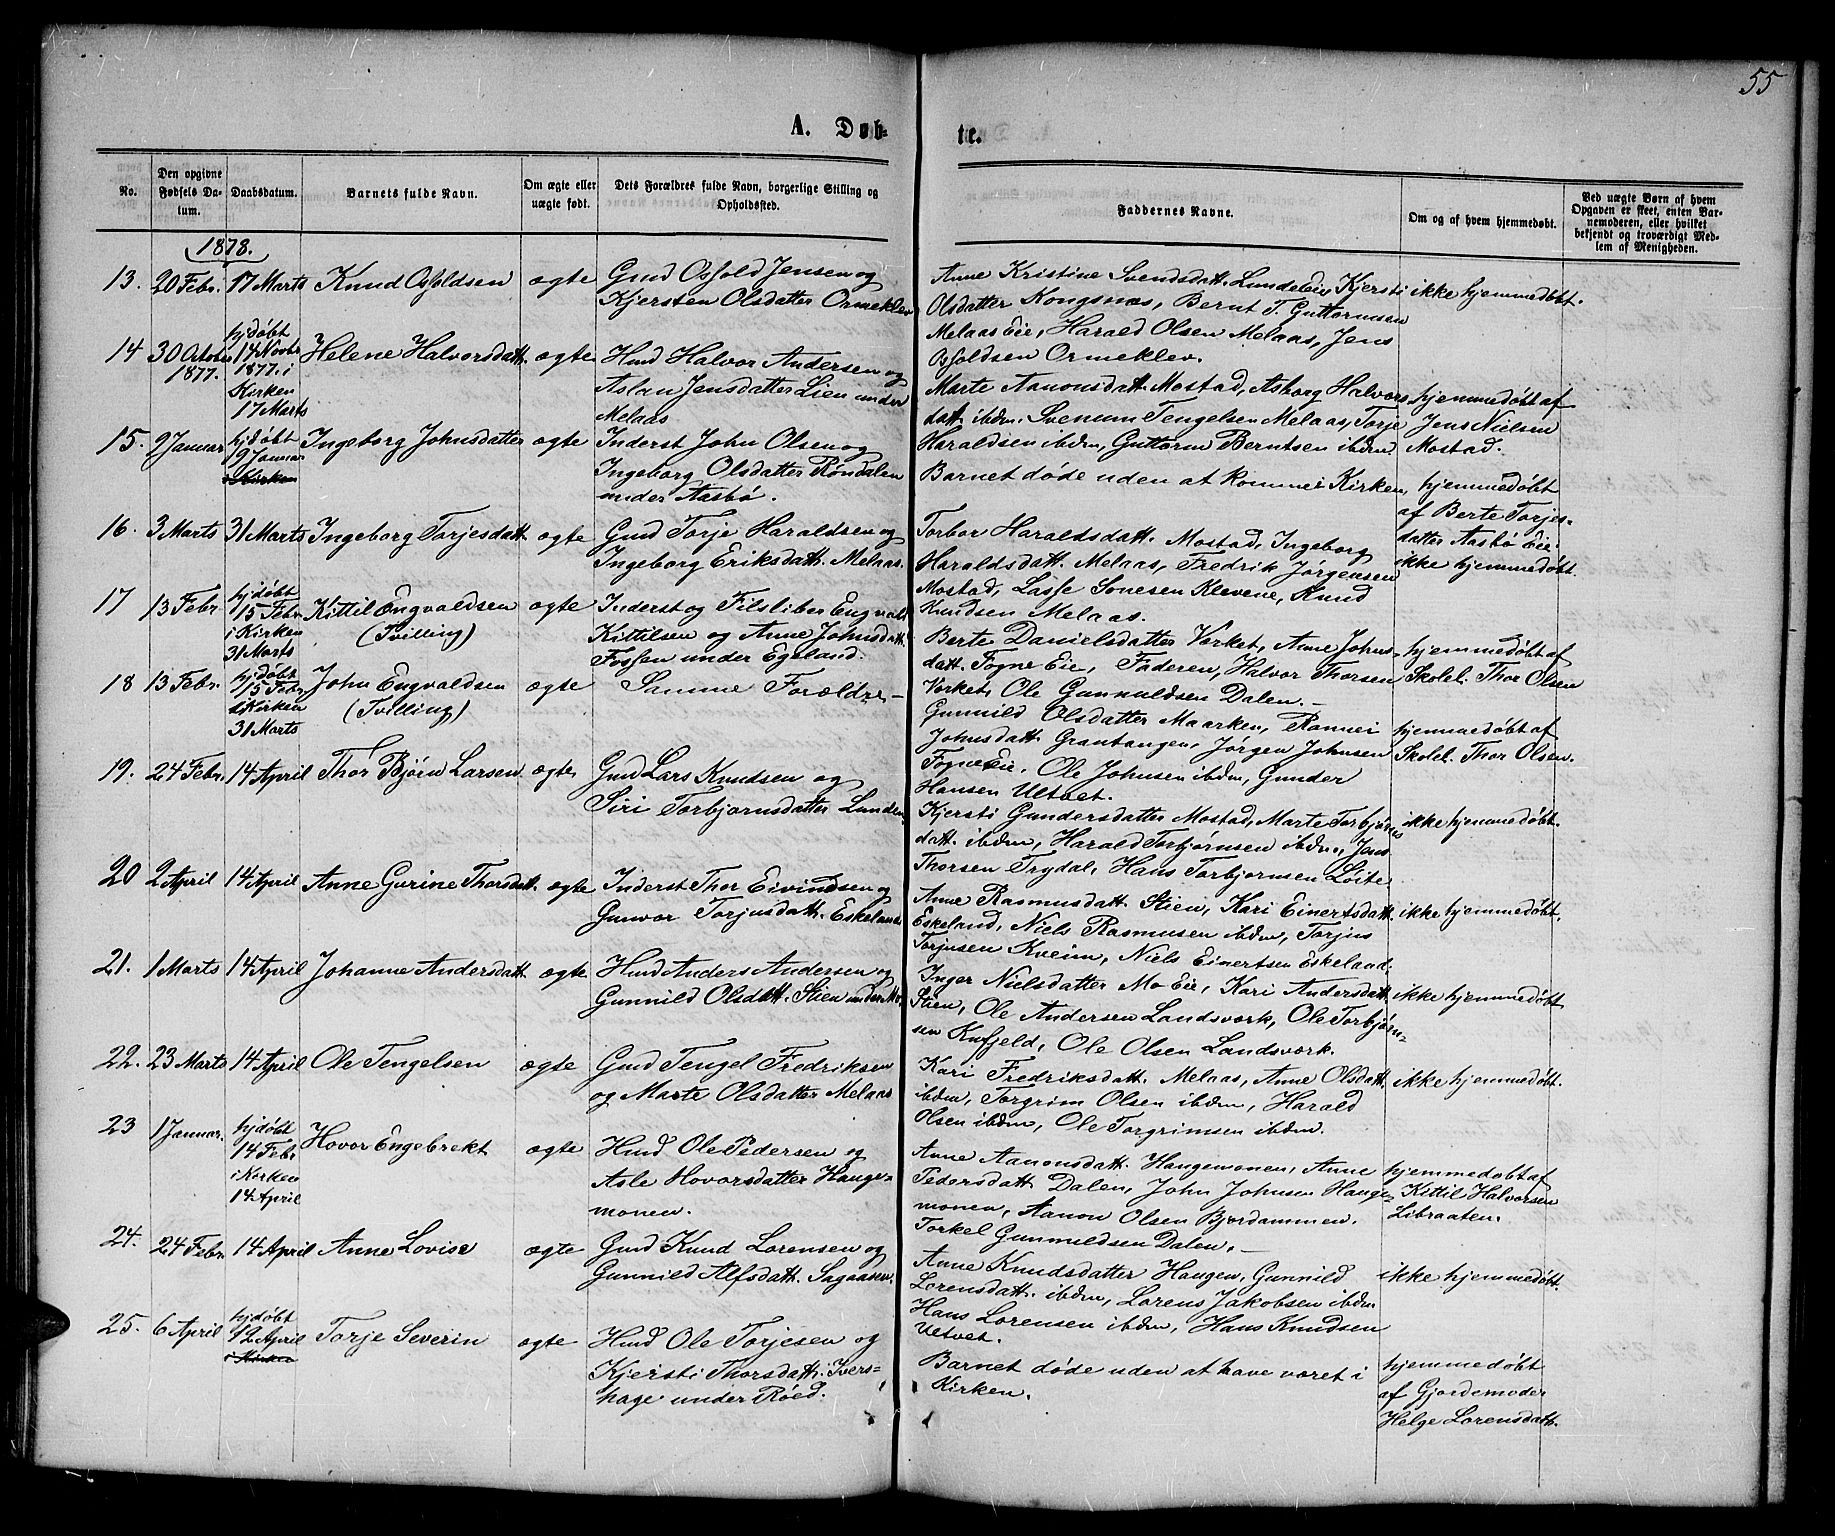 55
A. Døb-
te.
No.
Den opgivne Fødsels Da-tum.
Daabsdatum.
Barnets fulde Navn.
Om ægte eller uægte født.
Dets Forældres fulde Navn, borgerlige Stilling og Opholdssted.
Faddernes Navne.
Om og af hvem hjemmedøbt.
Ved uægte Børn af hvem Opgaven er skeet, enten Bar-nemoderen, eller hvilket bekjendt og troværdigt Med-lem af Menigheden.
1878.
13. 20 Febr. 17 Marts Knud Osfoldsen ægte
Gmd Osfold Jensen og
Kjersten Olsdatter Ormeklev
Anne Kristine Svendsdatt. Lundeeie, Kjersti
Olsdatter Kongsnæs, Bernt T. Guttormsen
Melaas Eie, Harald Olsen Melaas, Jens
Osfoldsen Ormeklev.
ikke hjemmedøbt.
14 30 October
1877.
hjdøbt
14 Novbr
1877. i
Kirken
17 Marts
Helene Halvorsdatt. ægte
Hmd Halvor Andersen og
Aslau Jensdatter Lien under
Melaas
Marte Aanonsdatt. Mostad, Asborg Halvors
datt. ibdm, Svenum Tengelsen Melaas, Torje
Haraldsen ibdm, Guttorm Berntsen ibdm
hjemmedøbt af
Jens Nielsen
Mostad.
15. 9 Januar
hjdøbt
9 Januar
i Kirken
Ingeborg Johnsdatter ægte
Inderst John Olsen og
Ingeborg Olsdatter Røndalen
under Aasbø.
Barnet døde uden at komme i Kirken,
hjemmedøbt
af Berte Torjes-
datter Aasbø Eie.
16. 3 Marts 31 Marts Ingeborg Torjesdatt. ægte
Gmd Torje Haraldsen og
Ingeborg Eriksdatt. Melaas.
Torbor Haraldsdatt. Mostad, Ingeborg
Haraldsdatt. Melaas, Fredrik Jørgensen
Mostad, Lasse Sonesen Klevene, Knud
Knudsen Melaas.
ikke hjemmedøbt.
17 13 Febr.
hjdøbt
15 Febr
i Kirken
31 Marts
Kittil Engvaldsen
(Tvilling)
ægte
Inderst og Filsliber Engvald
Kittilsen og Anne Johnsdatt.
Fossen under Egeland.
Berte Danielsdatter Verket, Anne Johns-
datt. Fogne Eie, Faderen, Halvor Thorsen
Verket, Ole Gunnuldsen Dalen. —
hjemmedøbt af
Skolel. Thor Olsen
18 13 Febr.
hjdøbt
15 Febr
i Kirken
31 Marts
John Engvaldsen
(Tvilling)
ægte
Samme Forældre —
Gunnild Olsdatter Maarken, Rannei
Johnsdatt. Grantangen, Jørgen Johnsen
Fogne Eie, Ole Johnsen ibdm, Gunder
Hansen Ultvet.
hjemmedøbt af
Skolel. Thor Olsen.
19. 24 Febr. 14 April Thor Bjørn Larsen ægte
Gmd Lars Knudsen og
Siri Torbjørnsdatter Lunden.
Kjersti Gundersdatter Mostad, Marte Torbjørns
datt. ibdm, Harald Torbjørnsen ibdm, Jens
Thorsen Trydal, Hans Torbjørnsen Løite
ikke hjemmedøbt.
20 2 April 14 April Anne Gurine Thorsdatt. ægte
Inderst Thor Eivindsen og
Gunvor Torjusdatt. Eskeland
Anne Rasmusdatt. Stien, Kari Einertsdatt.
Eskeland, Niels Rasmusen ibdm, Torjus
Torjusen Kveim, Niels Einertsen Eskeland.
ikke hjemmedøbt.
21. 1 Marts 14 April Johanne Andersdatt. ægte
Hmd Anders Andersen og
Gunnild Olsdatt. Stien under Mo.
Inger Nielsdatter Mo Eie, Kari Andersdatt.
Stien, Ole Andersen Landsverk, Ole Torbjørn-
sen Kufjeld, Ole Olsen Landsverk.
ikke hjemmedøbt
22. 23 Marts 14 April Ole Tengelsen ægte
Gmd Tengel Fredriksen
og Marte Olsdatter Melaas
Kari Fredriksdatt. Melaas, Anne Olsdatt.
ibdm, Torgrim Olsen ibdm, Harald
Olsen ibdm, Ole Torgrimsen ibdm.
ikke hjemmedøbt.
23 1 Januar.
hjdøbt
14 Febr
i Kirken
14 April
Hovor Engebrekt ægte
Hmd Ole Pedersen og
Asle Hovorsdatter Hauge-
monen.
Anne Aanonsdatt. Haugemonen, Anne
Pedersdatt. Dalen, John Johnsen Hauge-
monen, Aanon Olsen Bjordammen.
Torkel Gunnuldsen Dalen. —
hjemmedøbt af
Kittil Halvorsen
Libraaten.
24. 24 Febr 14 April Anne Lovise ægte
Gmd Knud Lorensen og
Gunnild Alfsdatt. Sagaasen.
Anne Knudsdatter Haugen, Gunnild
Lorensdatt. ibdm, Lorens Jakobsen ibdm
Hans Lorensen ibdm, Hans Knudsen
Ultvet.
ikke hjemmedøbt.
25. 6 April
hjdøbt
12 April
i Kirken
Torje Severin ægte
Hmd Ole Torjesen og
Kjersti Thorsdatt. Ivers-
hage under Røed.
Barnet døde uden at have været i
Kirken.
hjemmedøbt
af Gjordemoder
Helge Lorensdatt.